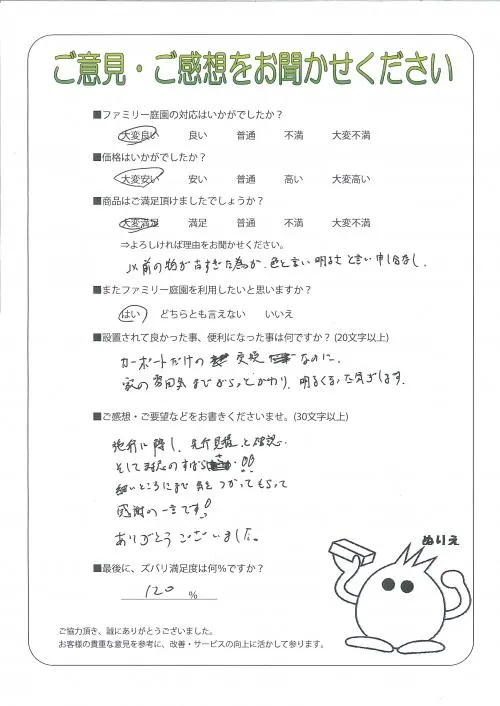 ご意見・ご感想をお聞かせください
■ファミリー庭園の対応はいかがでしたか？
大変良い 良い 普通 不満 大変不満
■価格はいかがでしたか？
大変安い 安い 普通 高い 大変高い
■商品はご満足頂けましたでしょうか？
大変満足 満足 普通 不満 大変不満
⇒よろしければ理由をお聞かせください。
以前の物が古すぎた為か、色と言い明るさと言い申し分なし。
■またファミリー庭園を利用したいと思いますか？
はい どちらとも言えない いいえ
■設置されて良かった事、便利になった事は何ですか？(20文字以上)
カーポートだけの 交換 なのに、
家の雰囲気までがらっとかわり、明るくなった気がします。
■ご感想・ご要望などをお書きくださいませ。(30文字以上)
施行に際し、先行見積と確認、
そして対応のすばらしさ!!
細いところにまで気をつかってもらって
感謝の一言です!
ありがとうございました。
ぬりえ
■最後に、ズバリ満足度は何％ですか？
120 ％
ご協力頂き、誠にありがとうございました。
お客様の貴重な意見を参考に、改善・サービスの向上に活かして参ります。